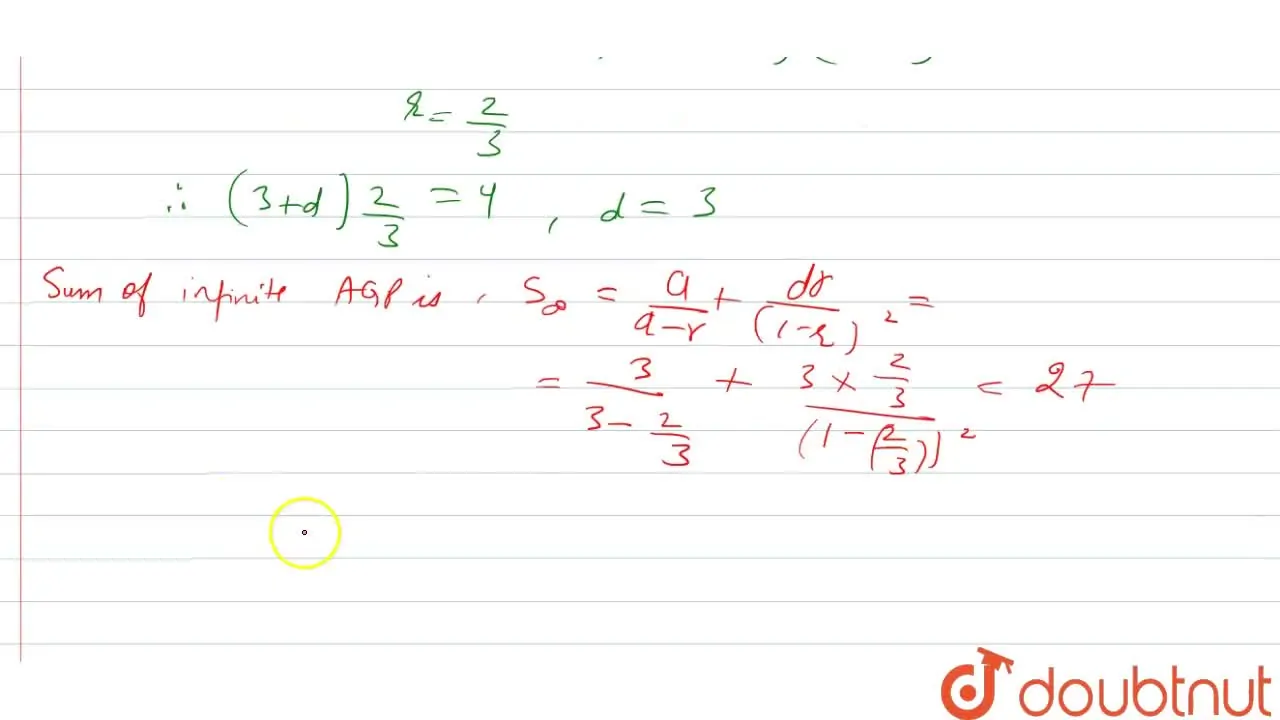 r = 2/3
∴ (3+d) 2/3 = 4 , d = 3
Sum of infinite AGP is , S∞ = a/(a-r) + dr/(1-r)² =
= 3/(3 - 2/3) + (3 × 2/3)/(1-(2/3))² = 27
doubtnut